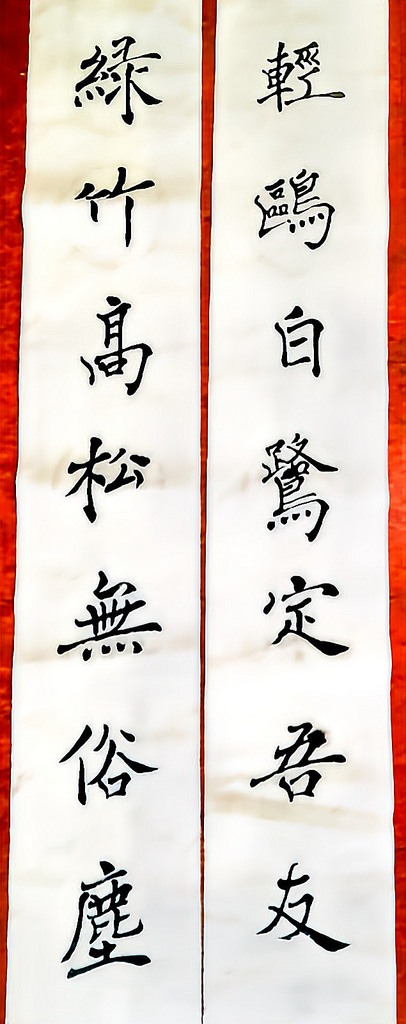 輕鷗白鷺定吾友
綠竹高松無俗塵